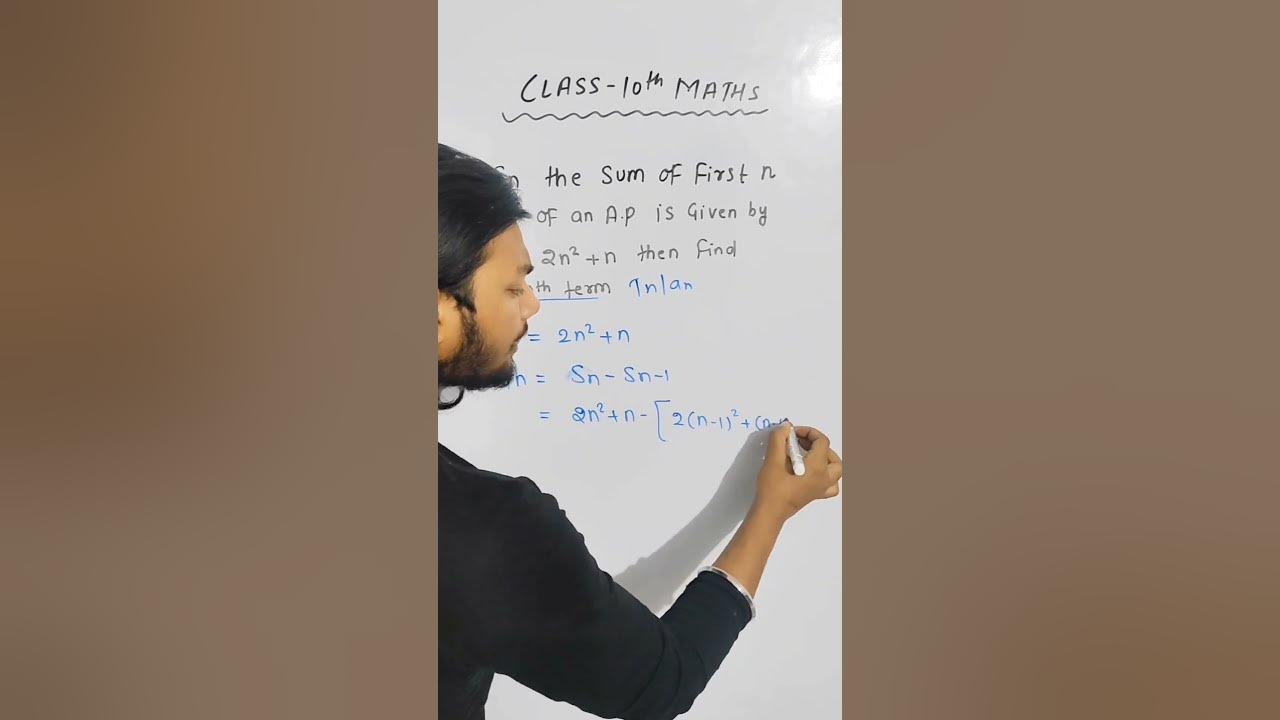 CLASS-10th MATHS
Sn the Sum of First n
of an A.P is Given by
2n²+n then find
nth term Tn/an
= 2n²+n
n = Sn - Sn-1
= 2n²+n - [2(n-1)²+(n-1